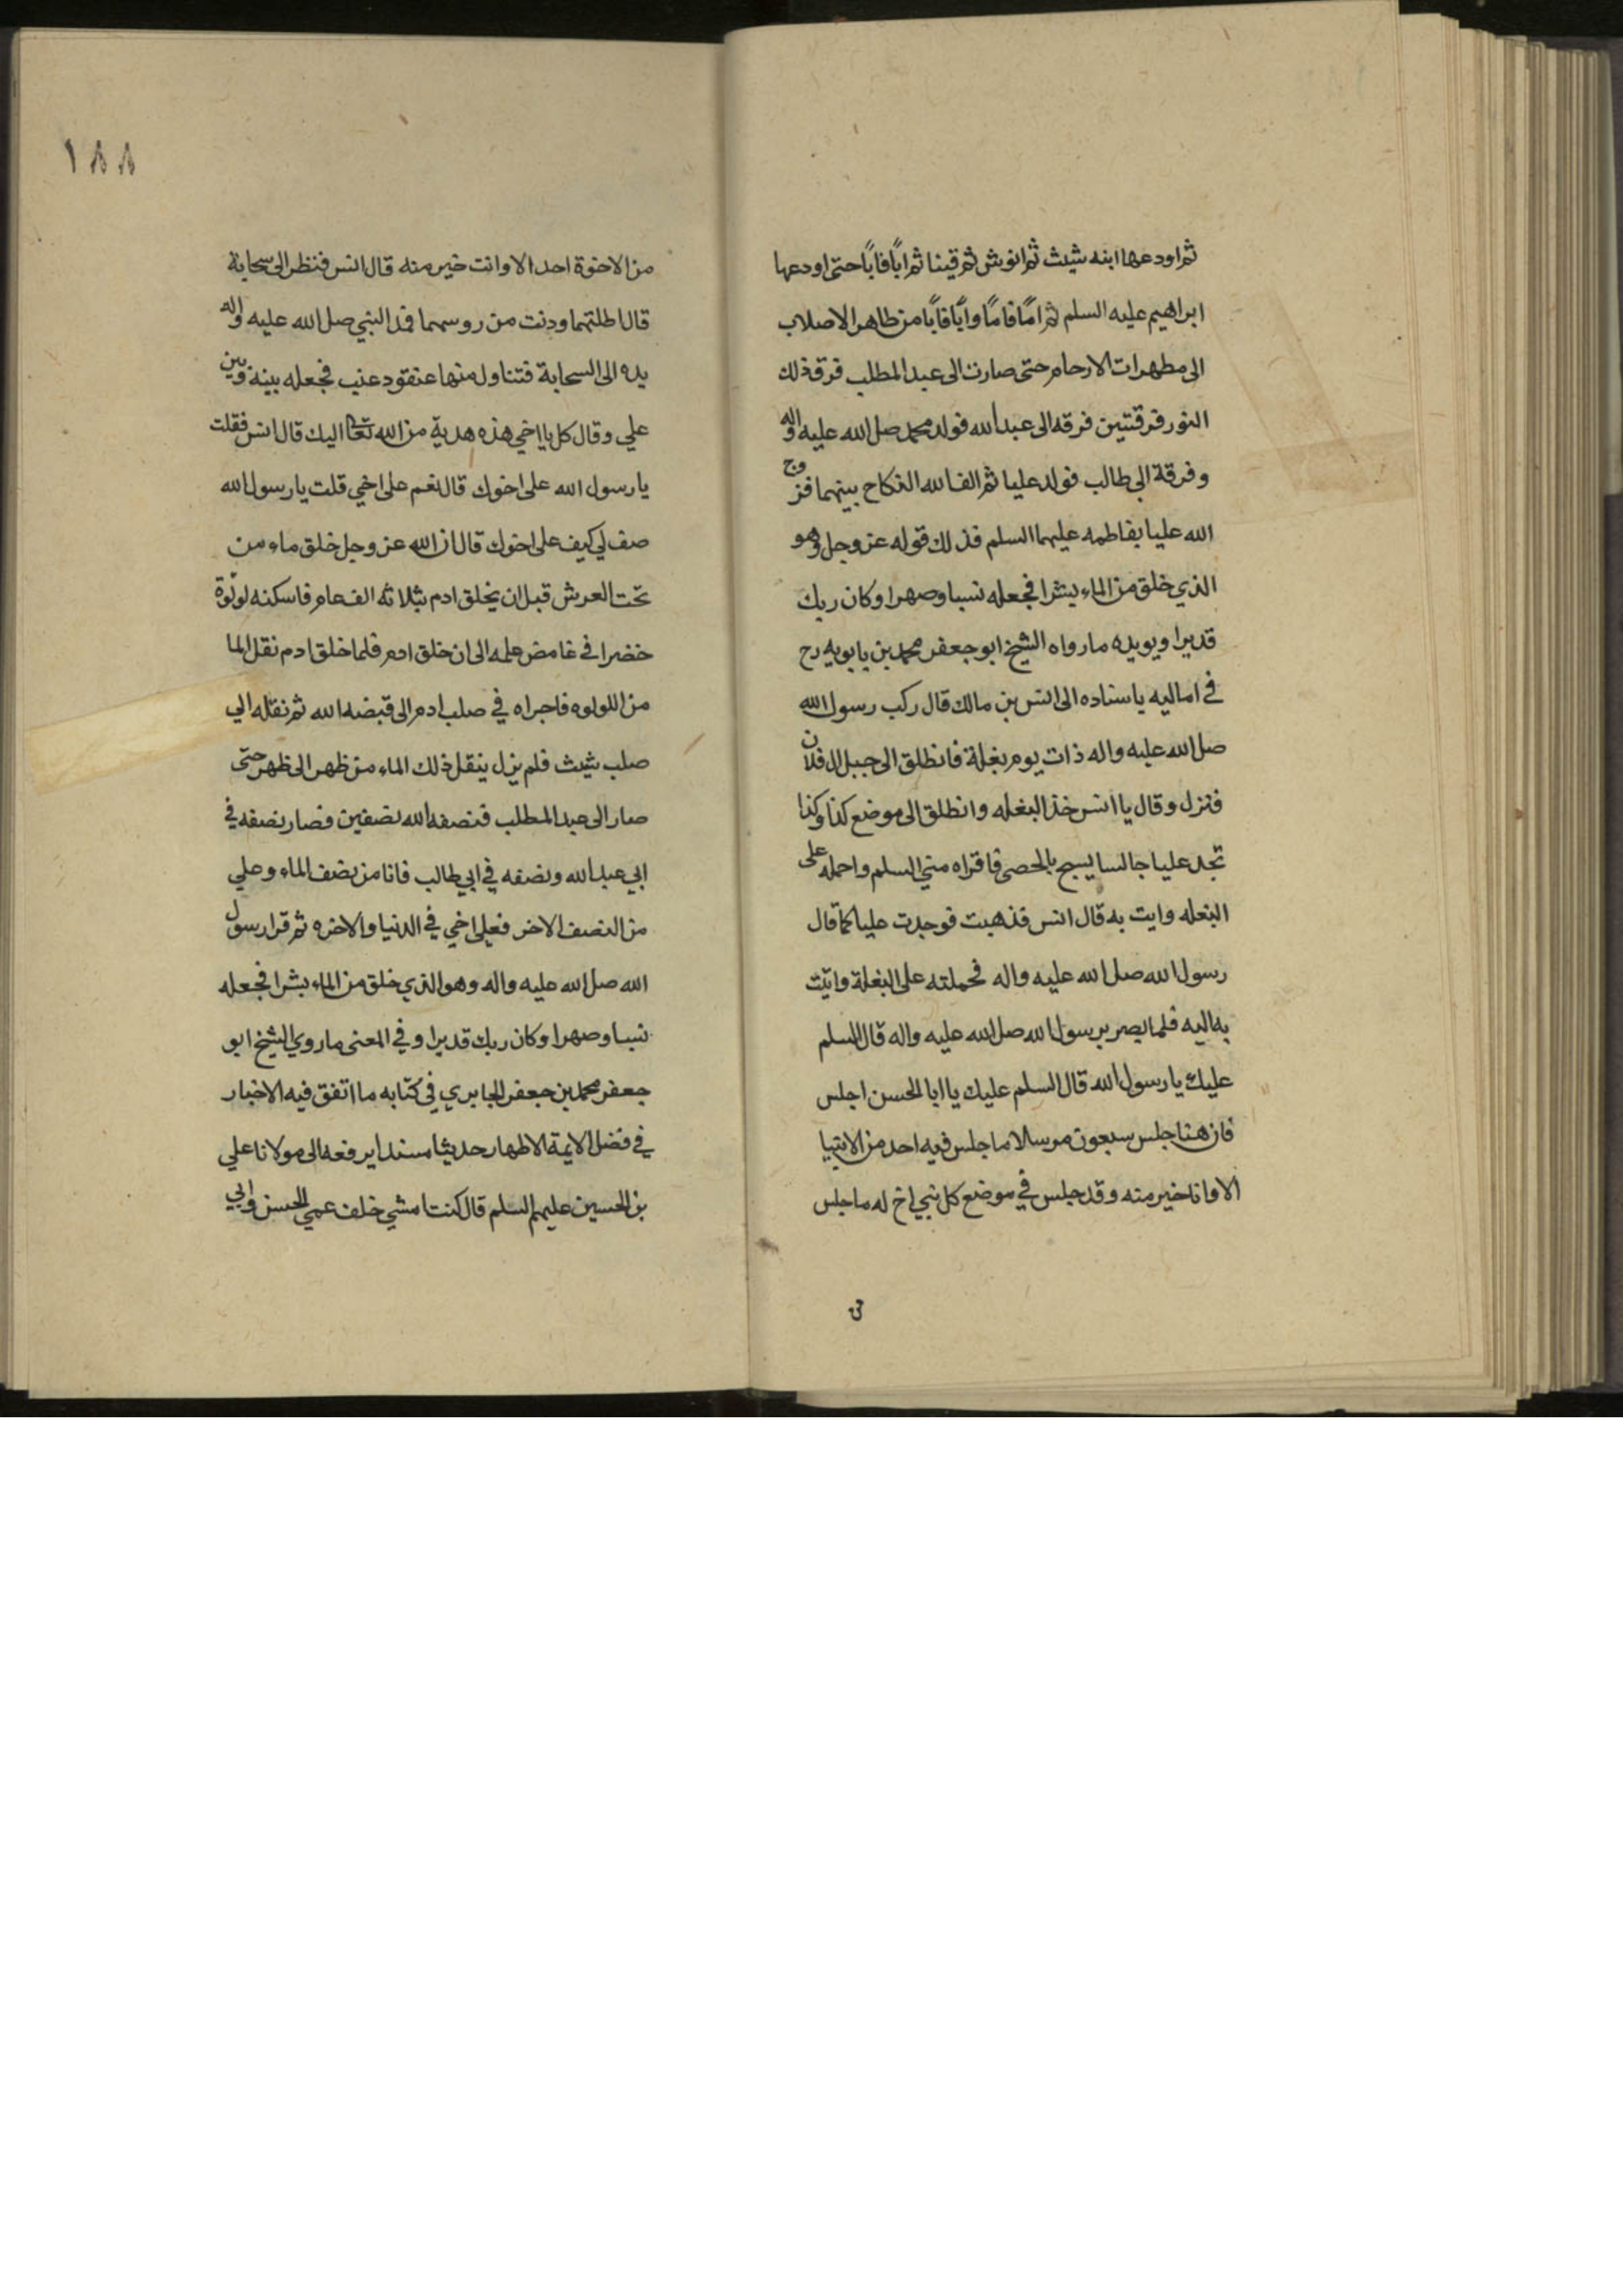 ثم اودعها ابنه شيث ثم انوش ثم قينا ثم ابًا فابًا حتى اودعها
ابراهيم عليه السلم ثم امًا فامًا وابًا فابًا من طاهر الاصلاب
الى مطهرات الارحام حتى صارت الى عبد المطلب فرق ذلك
النور فرقتين فرقه الى عبد الله فولد محمد صل الله عليه واله
وفرقة الى طالب فولد عليا ثم الف الله النكاح بينهما فزوج
الله عليا بفاطمه عليهما السلم فذلك قوله عز وجل وهو
الذي خلق من الماء بشرا فجعله نسبا وصهرا وكان ربك
قديرا ويويده ما رواه الشيخ ابو جعفر محمد بن بابويه رح
في اماليه باسناده الى انس بن مالك قال ركب رسول الله
صل الله عليه واله ذات يوم بغلة فانطلق الى جبل ال فلان
فنزل وقال يا انس خذ البغله وانطلق الى موضع كذا وكذا
تجد عليا جالسا يسبح بالحصى فاقراه مني السلم واحمله على
البغله وايت به قال انس فذهبت فوجدت عليا كما قال
رسول الله صل الله عليه واله فحملته على البغلة واتيت
به اليه فلما بصر برسول الله صل الله عليه واله قال السلم
عليك يا رسول الله قال السلم عليك يا ابا الحسن اجلس
فان هنا جلس سبعون مرسلا ما جلس فيه احد من الانبيا
الا وانا خير منه وقد جلس في موضع كل نبي اخ له ما جلس
١٨٨
من الاخوة احد الا وانت خير منه قال انس فنظر الى سحابة
قال اظلتهما ودنت من روسهما فمد النبي صل الله عليه واله
يده الى السحابة فتناول منها عنقود عنب فجعله بينه وبين
علي وقال كل يا اخي هذه هدية من الله تعا اليك قال انس فقلت
يا رسول الله على اخوك قال نعم على اخي قلت يا رسول الله
صف لي كيف على اخوك قال ان الله عز وجل خلق ماء من
تحت العرش قبل ان يخلق ادم بثلاثه الف عام فاسكنه لولوة
خضرا في غامض علمه الى ان خلق ادم فلما خلق ادم نقل الما
من اللولوه فاجراه في صلب ادم الى قبضه الله ثم نقله الي
صلب شيث فلم يزل ينقل ذلك الماء من ظهر الى ظهر حتى
صار الى عبد المطلب فنصفه الله نصفين فصار نصفه في
ابي عبد الله ونصفه في ابي طالب فانا من نصف الماء وعلي
من النصف الاخر فعلى اخي في الدنيا والاخره ثم قرا رسول
الله صل الله عليه واله وهو الذي خلق من الماء بشرا فجعله
نسبا وصهرا وكان ربك قديرا وفي المعنى ما روي الشيخ ابو
جعفر محمد بن جعفر الجابري في كتابه ما اتفق فيه الاخبار
في فضل الايمة الاطهار حديثا مسندا يرفعه الى مولانا علي
بن الحسين عليهم السلم قال كنت امشي خلف عمي الحسن وابي